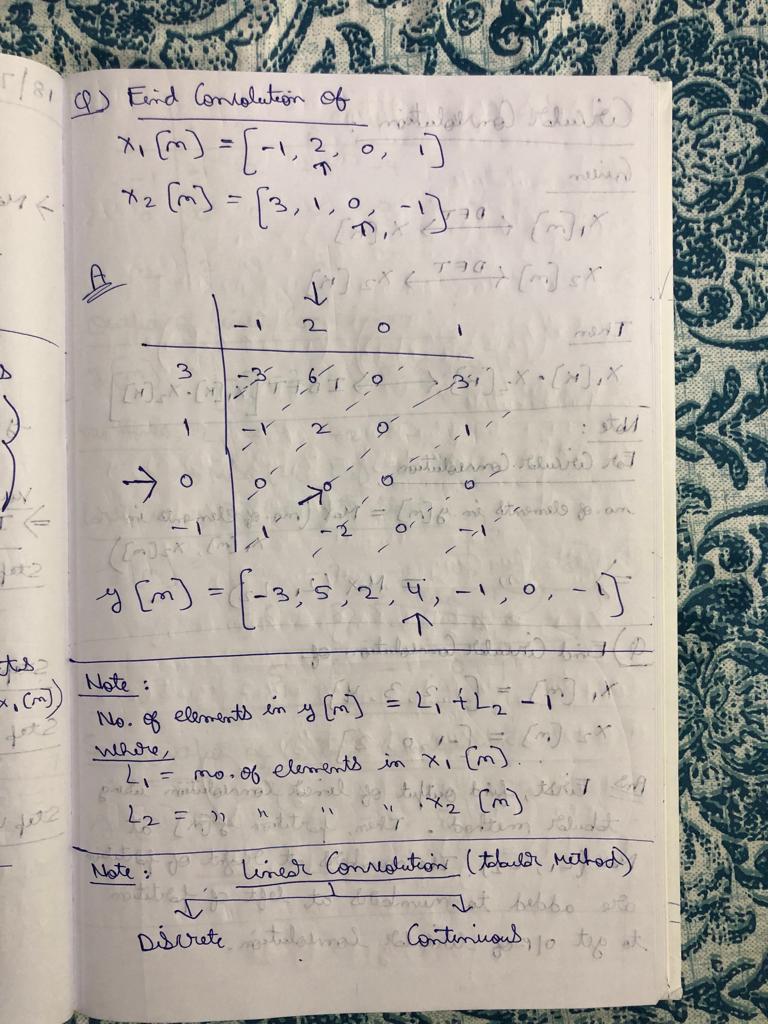 Q) Find Convolution of
x₁[n] = [-1, 2, 0, 1]
↑
x₂[n] = [3, 1, 0, -1]
↑
A
↓
-1 2 0 1
3 -3 6 0 3
1 -1 2 0 1
→ 0 0 0 0 0
-1 1 -2 0 -1
y[n] = [-3, 5, 2, 4, -1, 0, -1]
↑
Note :
No. of elements in y[n] = L₁ + L₂ - 1
where,
L₁ = no. of elements in x₁[n].
L₂ = " " " " x₂[n]
Note : Linear Convolution (tabular Method)
Discrete Continuous